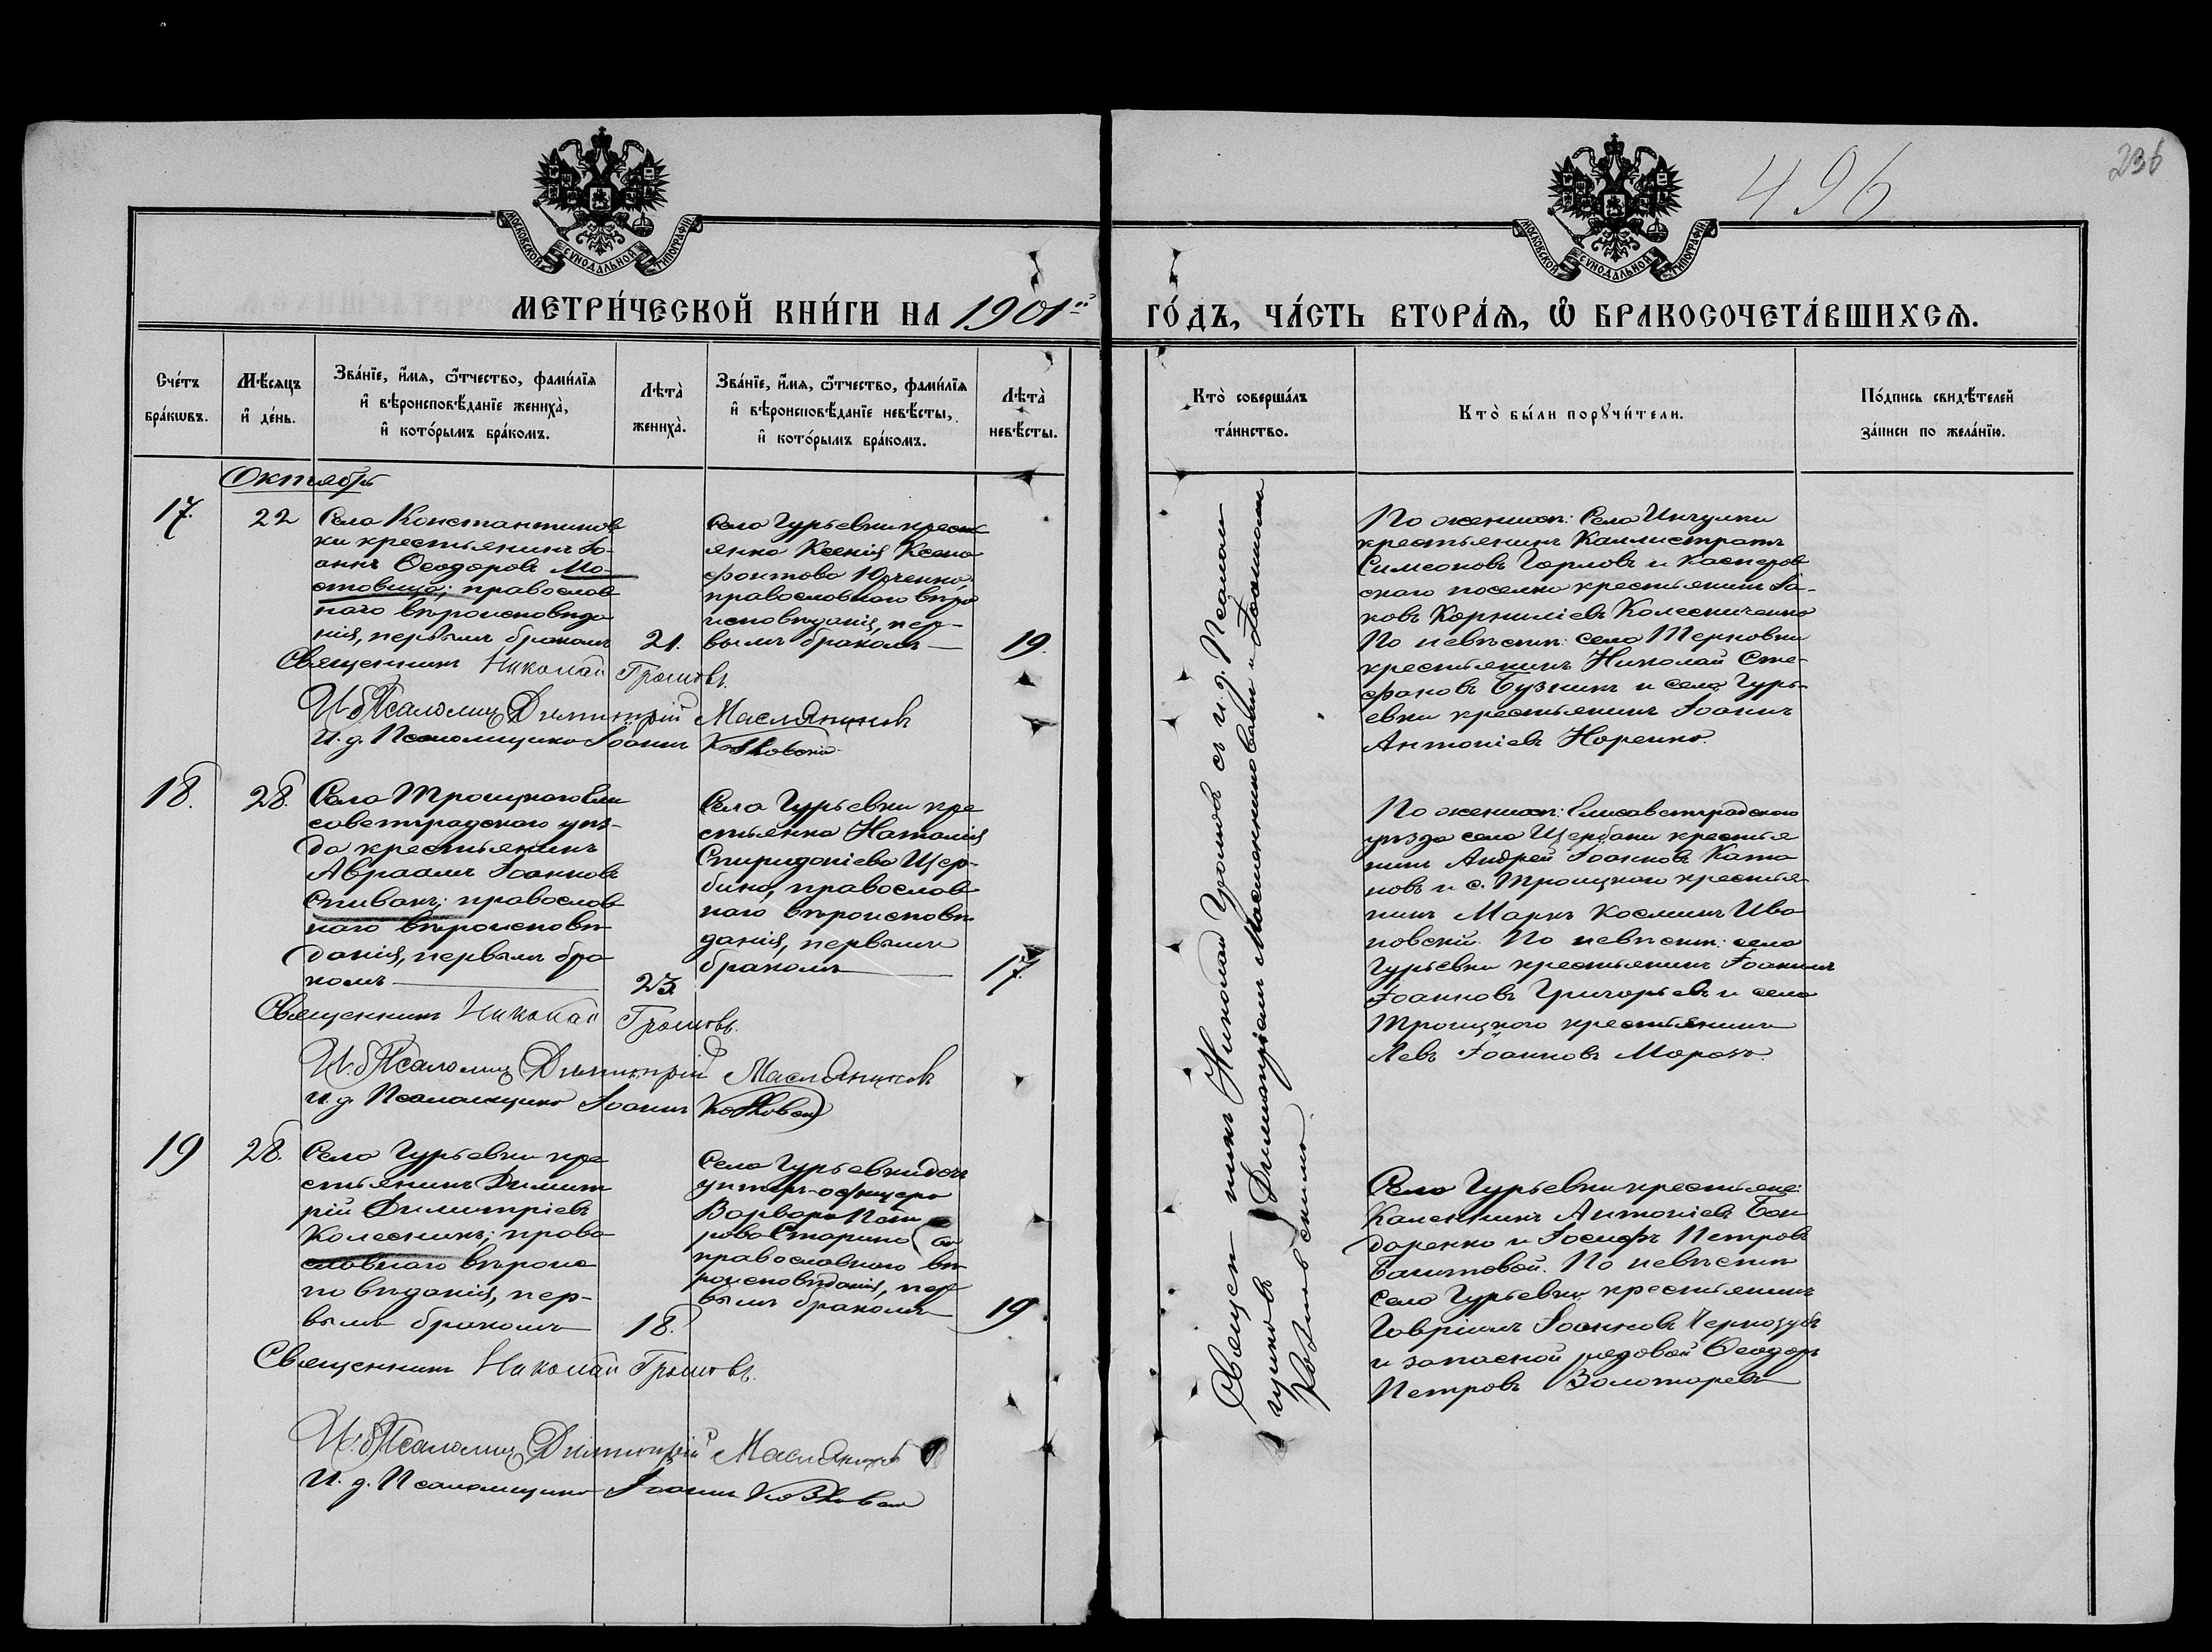 496
236
МОСКОВСКОЙ СѴНОДАЛЬНОЙ ТИПОГРАФІИ
МОСКОВСКОЙ СѴНОДАЛЬНОЙ ТИПОГРАФІИ
МЕТРИ́ЧЕСКОЙ КНИ́ГИ НА 1901й
ГО́ДЪ, ЧА́СТЬ ВТОРА́Я, Ѡ БРАКОСОЧЕТА́ВШИХСЯ.
Сче́тъ
бра́кѡвъ.
Мѣ́сяцъ
и҆ де́нь.
Зва́нїе, и҆́мя, ѻ҆́тчество, фами́лїя
и҆ вѣроисповѣ́данїе жениха̀,
и҆ кото́рымъ бра́комъ.
Лѣта̀
жениха̀.
Зва́нїе, и҆́мя, ѻ҆́тчество, фами́лїя
и҆ вѣроисповѣ́данїе невѣ́сты,
и҆ кото́рымъ бра́комъ.
Лѣта̀
невѣ́сты.
Кто̀ соверша́лъ
та́инство.
Кто̀ бы́ли порꙋчи́тели.
По́дпись свидѣ́телей
за́писи по жела́нїю.
Октябрь
17.
22
Села Константинов
ки крестьянинъ Іо-
аннъ Ѳеодоровъ Мо-
стовица; православ
наго вѣроисповѣда
нія, первымъ бракомъ
21.
Села Гурьевки кресть
янка Ксенія Ксено
фонтова Юрченко,
православнаго вѣро
исповѣданія, пер-
вымъ бракомъ
19.
По женихѣ: Села Ингулки
крестьянинъ Каллистратъ
Симеоновъ Горловъ и Касперов
скаго поселка крестьянинъ Іа-
ковъ Корниліевъ Колесниченко
По невѣстѣ: села Терновки
крестьянинъ Николай Сте-
фановъ Бузникъ и села Гурь-
евки крестьянинъ Іоаннъ
Антоніевъ Норенко.
Священникъ Николай Громовъ.
И. д. Псаломщ Димитрій Маслянниковъ
И. д. Псаломщика Іоаннъ Козловскій
18.
28.
Села Троицкаго Ели
саветградскаго уѣз-
да крестьянинъ
Авраамъ Іоанновъ
Спивакъ; православ
наго вѣроисповѣ
данія, первымъ бра
комъ
23.
Села Гурьевки кре
стьянка Наталія
Спиридоніева Щер-
бина, православ
наго вѣроисповѣ
данія, первымъ
бракомъ
17.
По женихѣ: Елисаветградскаго
уѣзда села Щербани крестья
нинъ Андрей Іоанновъ Ката
новъ и с. Троицкаго крестья
нинъ Маркъ Косминъ Ива
новскій. По невѣстѣ: села
Гурьевки крестьянинъ Іоакимъ
Іоанновъ Григорьевъ и села
Троицкаго крестьянинъ
Левъ Іоанновъ Морозъ.
Священникъ Николай Громовъ.
И. д. Псаломщ Димитрій Маслянниковъ
и. д. Псаломщика Іоаннъ Козловскій
19
28.
Села Гурьевки кре
стьянинъ Димит
рій Димитріевъ
Колесникъ; право
славнаго вѣроис
повѣданія, пер-
вымъ бракомъ
18.
Села Гурьевки дочь
унтеръ-офицера
Варвара Пет
рова Старина
православнаго вѣ
роисповѣданія, пер
вымъ бракомъ
19
Села Гурьевки крестьяне:
Каленникъ Антоніевъ Бон
даренко и Іосифъ Петровъ
Баштовой. По невѣстѣ
села Гурьевки крестьянинъ
Гавріилъ Іоанновъ Чернозубъ
и запасной рядовой Ѳеодоръ
Петровъ Золотаревъ
Священникъ Николай Громовъ.
И. д. Псаломщ Димитрій Маслянниковъ
И. д. Псаломщика Іоаннъ Козловскій
Священникъ Николай Громовъ съ и. д. Псалом
щиковъ Димитріемъ Маслянниковымъ и Іоанномъ
Козловскимъ.